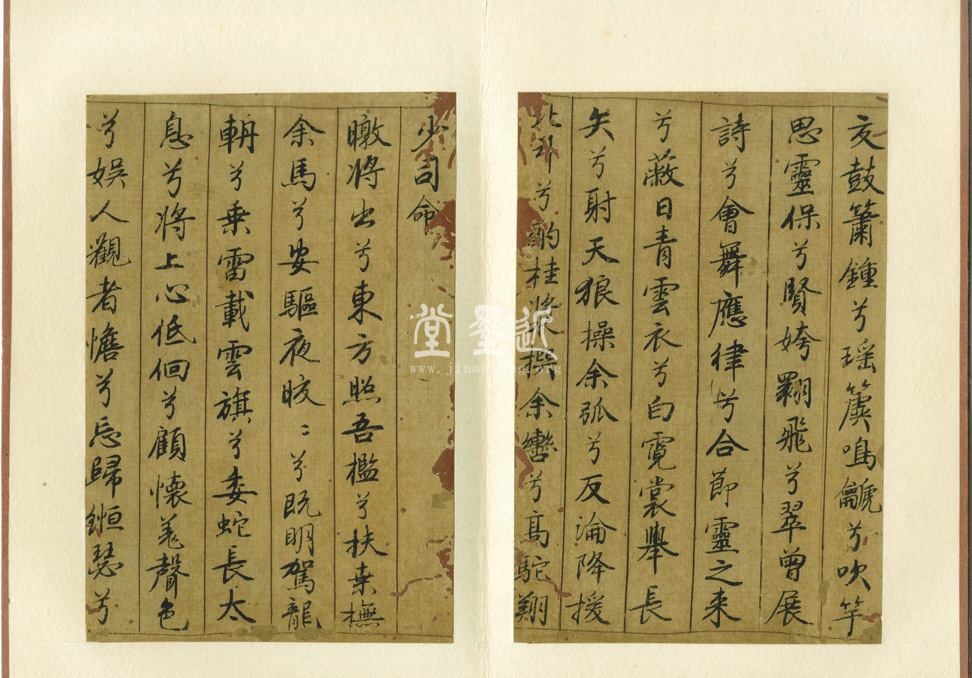 交鼓簫鍾兮瑤簴鳴䶵兮吹竽
思靈保兮賢姱翾飛兮翠曾展
詩兮會舞應律兮合節靈之来
兮蔽日青雲衣兮白霓裳舉長
矢兮射天狼操余弧兮反淪降援
北斗兮酌桂漿撰余轡兮高駝翔
少司命
暾將出兮東方照吾檻兮扶桒撫
余馬兮安驅夜晈〻兮既明駕龍
輈兮乗雷載雲旗兮委蛇長太
息兮將上心低佪兮顧懷羌聲色
兮娛人觀者憺兮忘歸緪瑟兮
近墨堂
www.jinmotang.org